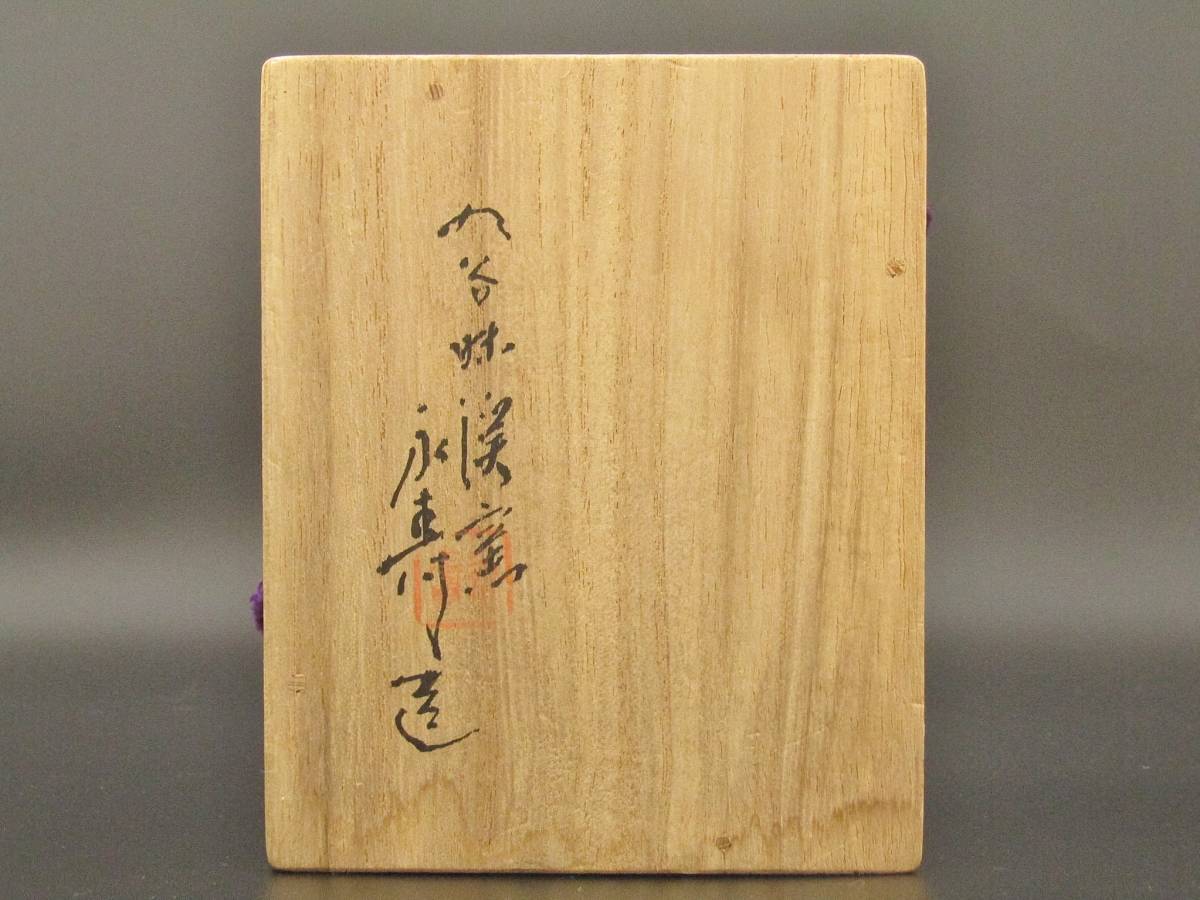 九谷妹渓窯
永寿造